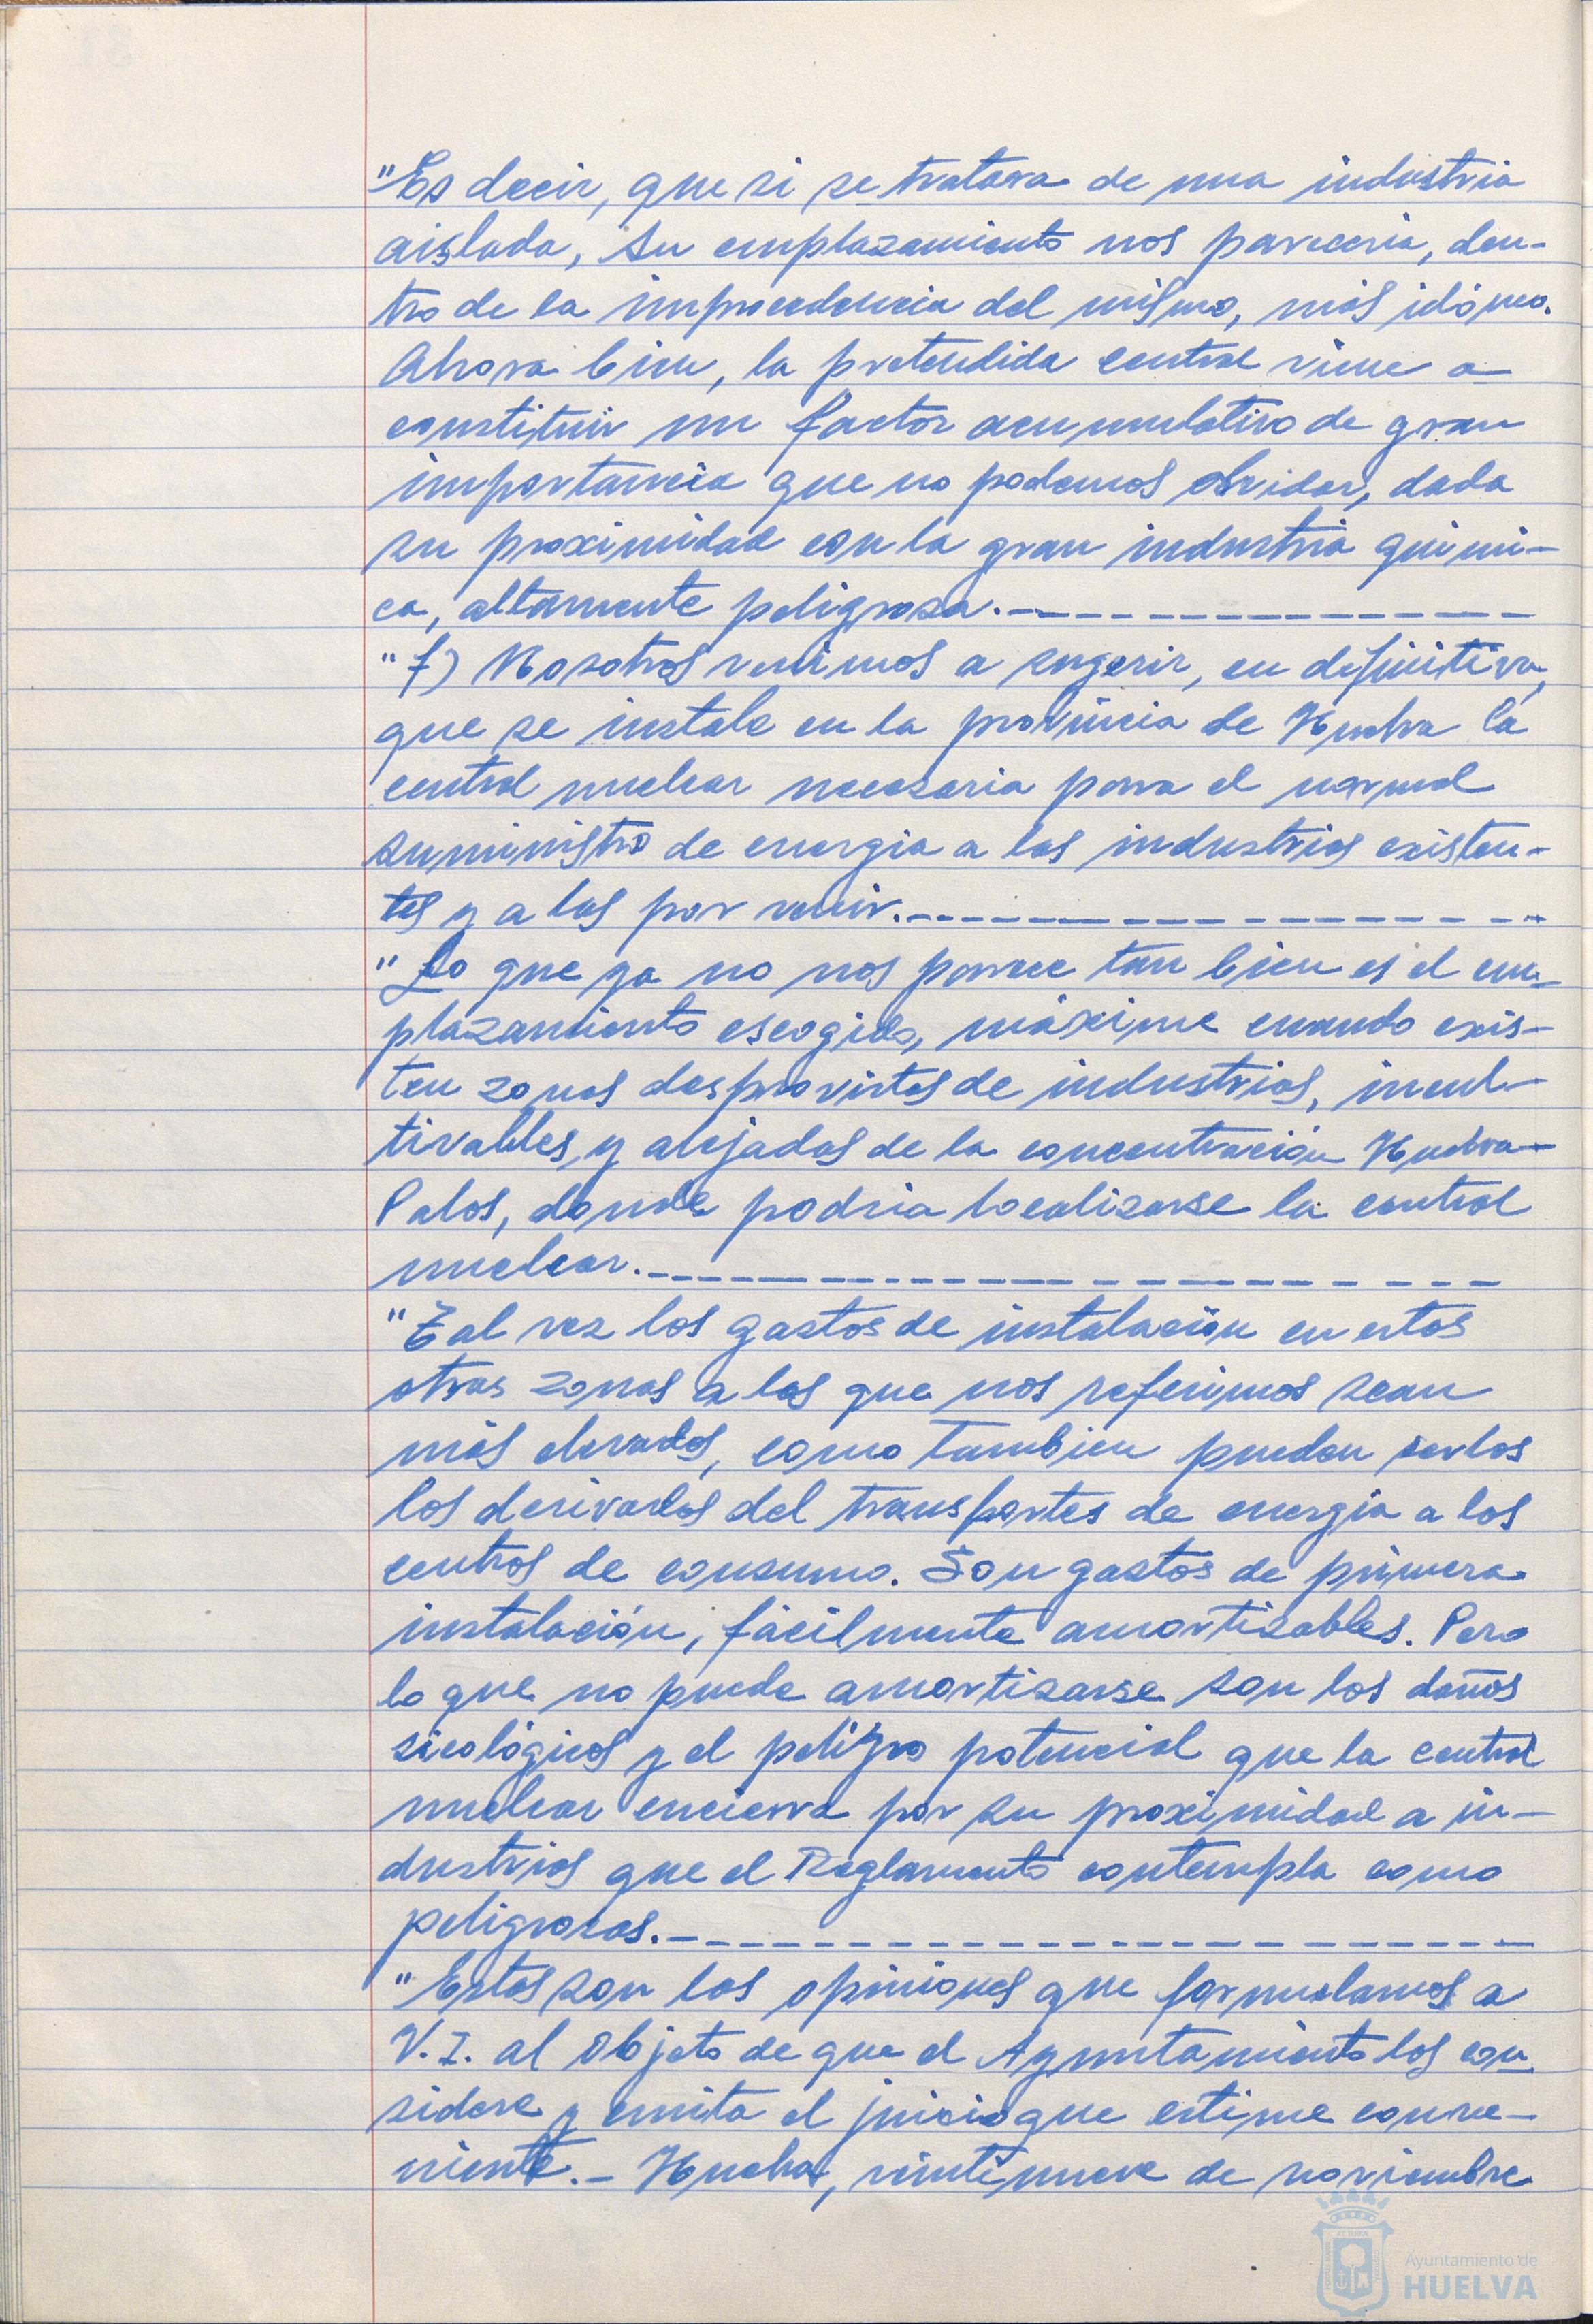 "Es decir, que si se tratara de una industria
aislada, su emplazamiento nos parecería, den-
tro de la improcedencia del mismo, más idóneo.
Ahora bien, la pretendida central viene a
constituir un factor acumulativo de gran
importancia que no podemos olvidar, dada
su proximidad con la gran industria quími-
ca, altamente peligrosa.-
"f) Nosotros venimos a sugerir, en definitiva,
que se instale en la provincia de Huelva la
central nuclear necesaria para el normal
suministro de energía a las industrias existen-
tes y a las por venir.-
"Lo que ya no nos parece tan bien es el em-
plazamiento escogido, máxime cuando exis-
ten zonas desprovistas de industrias, incul-
tivables, y alejadas de la concentración Huelva-
Palos, donde podría localizarse la central
nuclear.-
"Tal vez los gastos de instalación en estas
otras zonas a las que nos referimos sean
más elevados, como también pueden serlos
los derivados del transportes de energía a los
centros de consumo. Son gastos de primera
instalación, fácilmente amortizables. Pero
lo que no puede amortizarse son los daños
sicológicos y el peligro potencial que la central
nuclear encierra por su proximidad a in-
dustrias que el Reglamento contempla como
peligrosas.-
"Estas son las opiniones que formulamos a
V.I. al objeto de que el Ayuntamiento las con
sidere y emita el juicio que estime conve-
niente.- Huelva, veintinueve de noviembre
Ayuntamiento de
HUELVA